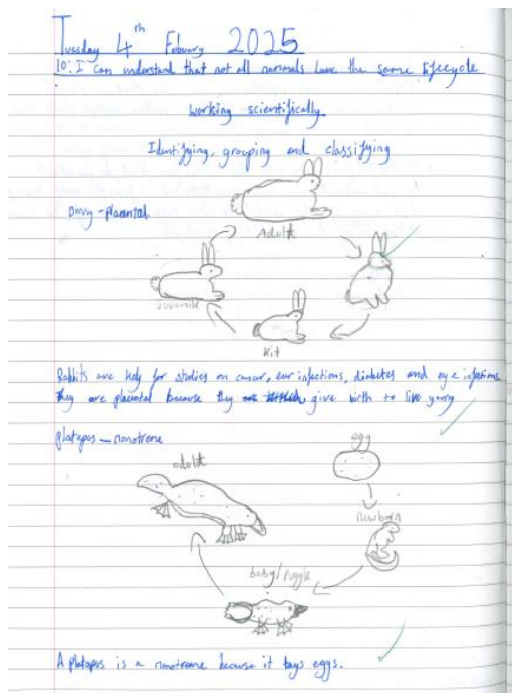 Tuesday 4th Febuary 2025
LO: I can understand that not all mammals have the same lifecycle
working scientifically
Identifying, grouping and classifying
Bunny - placental
Adult
Juvenile
Kit
Rabbits are key for studies on cancer, ear infections, diabetes and eye infections
they are placental because they give birth to live young
platypus - monotreme
egg
adult
Newborn
baby/Puggle
A platypus is a monotreme because it lays eggs.